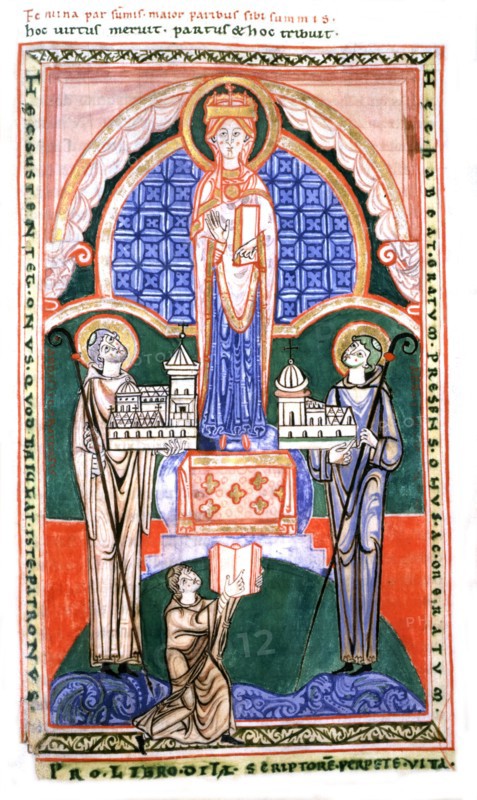 Femina par sūmis. maior paribus sibi summis.
hoc virtus meruit. partus & hoc tribuit.
HEC SUSTENTET ONUS QUOD BAIULAT ISTE PATRONUS.
HEC HABEAT GRATUM PRESSENS OMUS AC ONERATUM.
PRO. LIBRO. DITA. SCRIPTORĒ. PERPETE. VITA.